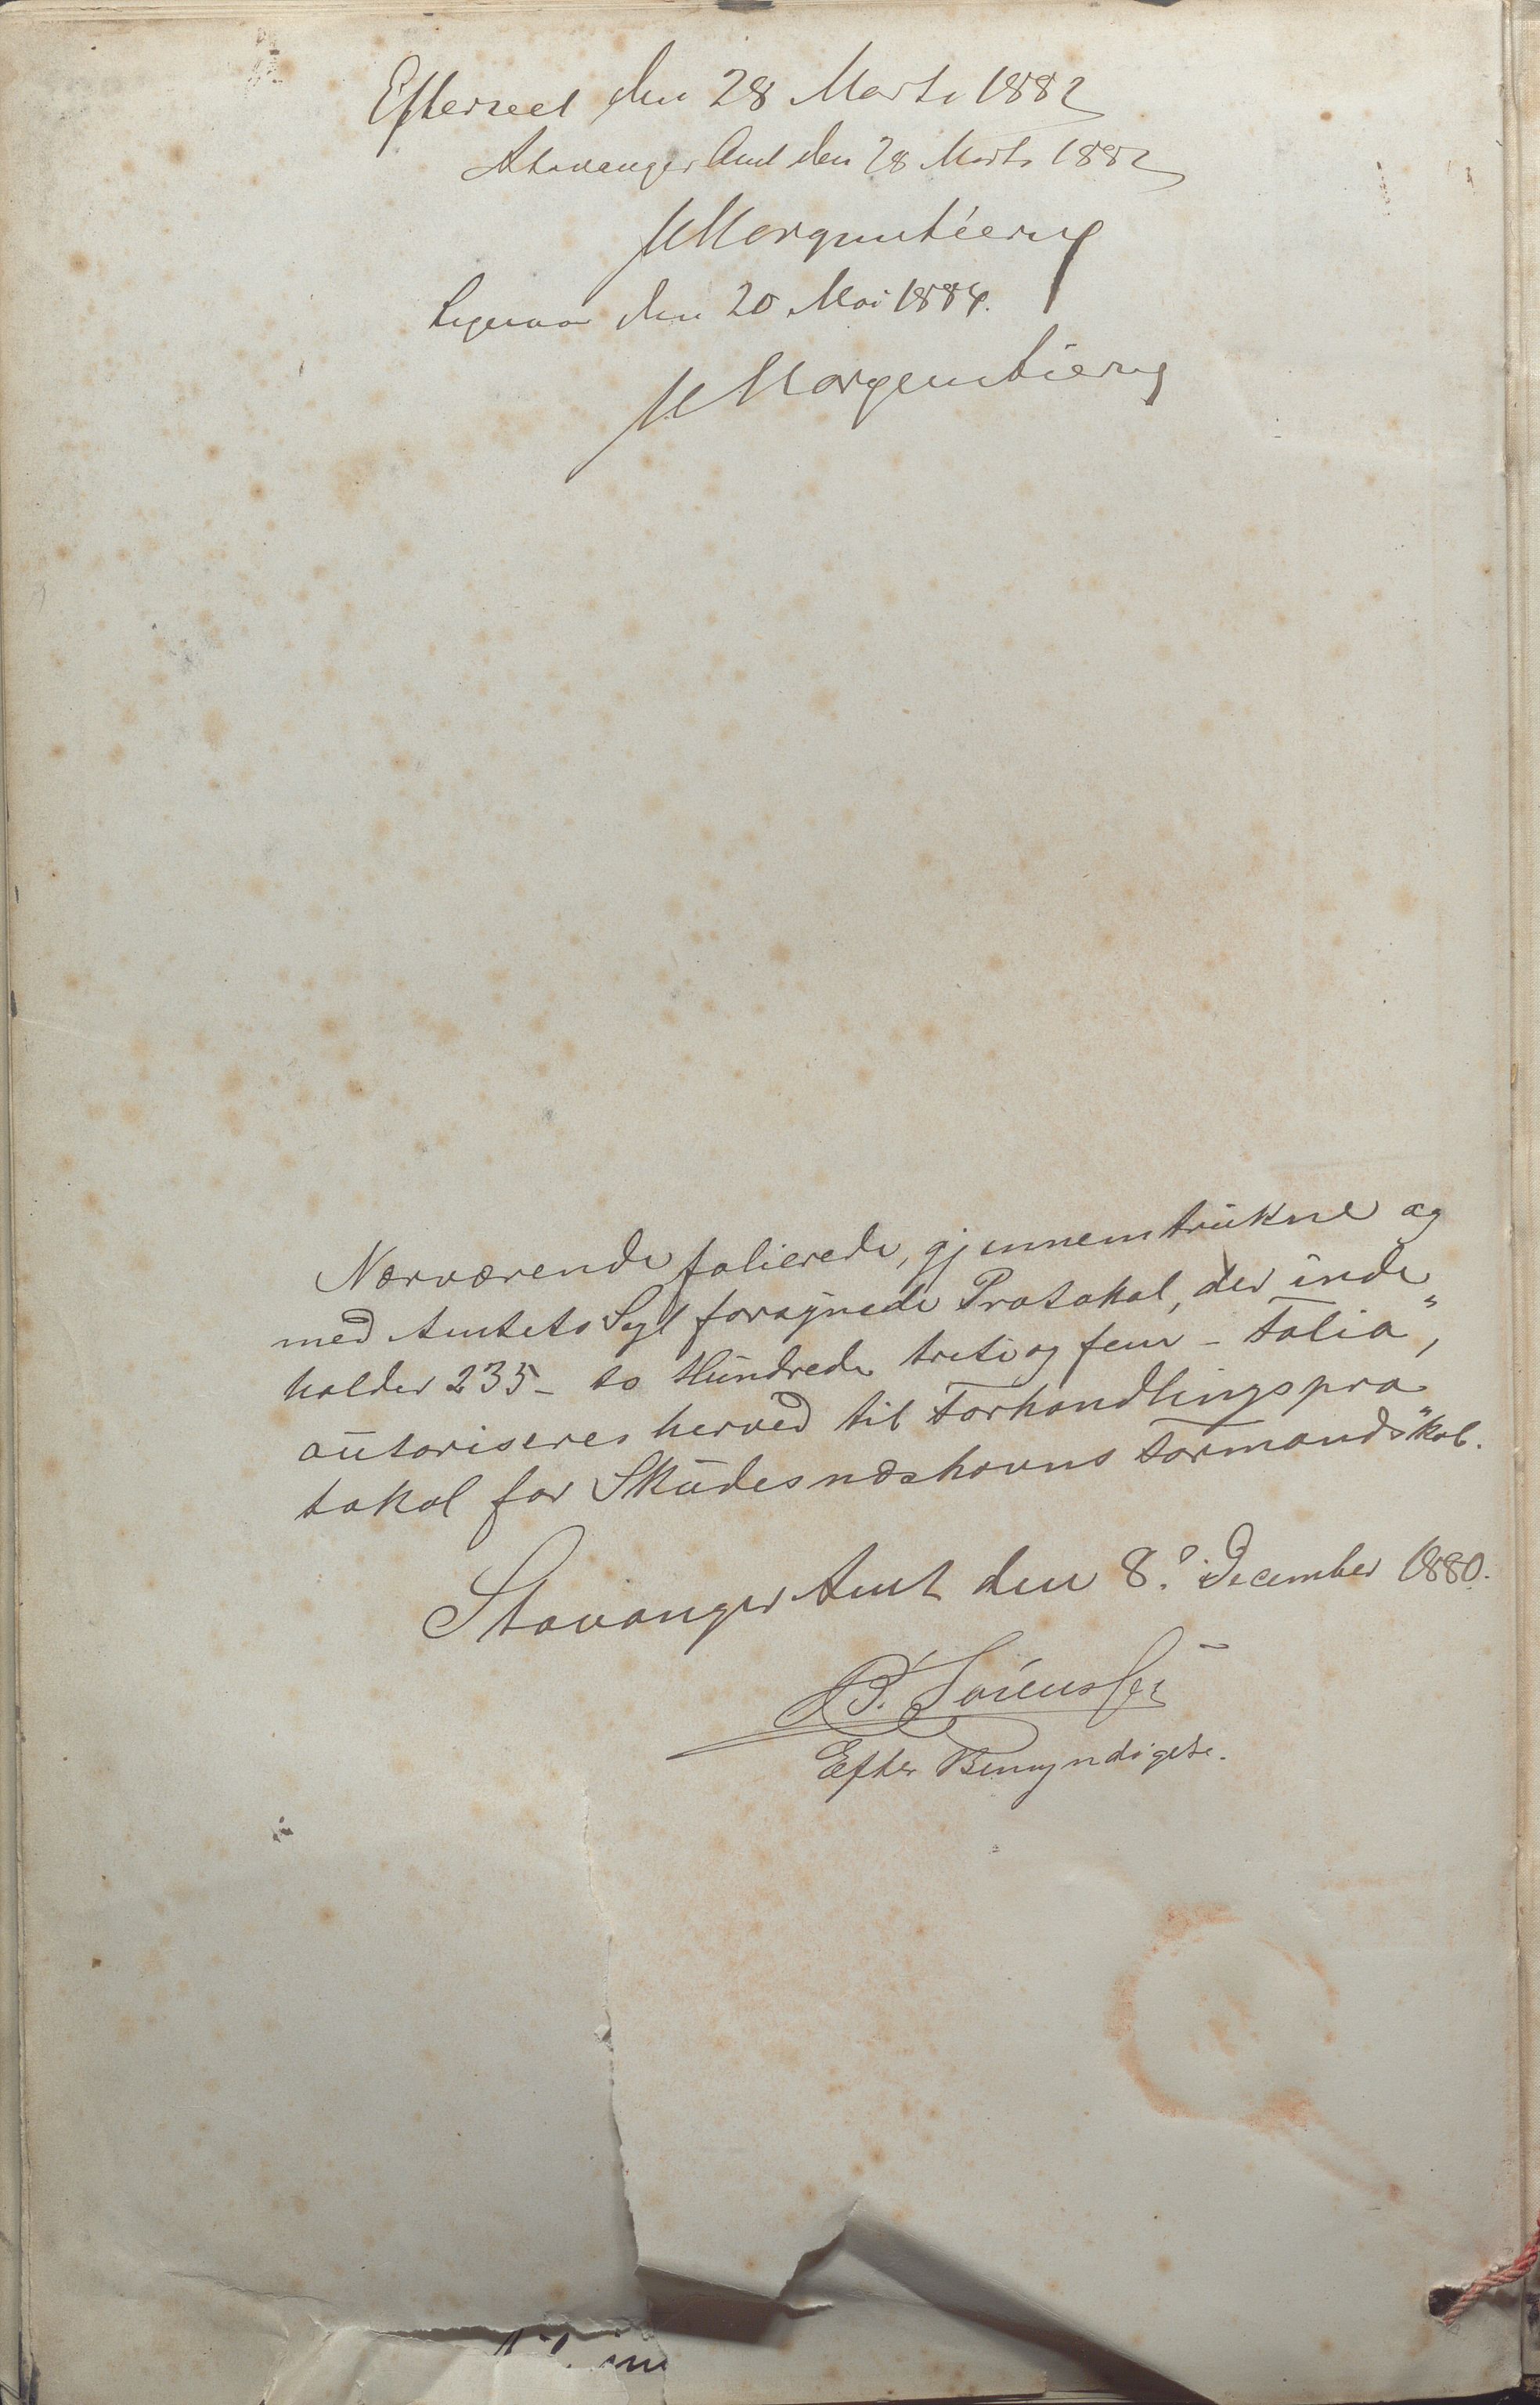 Efterseet den 28 Marts 1882
Stavanger Amt den 28 Marts 1882
Morgenstierne
Ligesaa den 20 Mai 1884.
Morgenstierne
Nærværende folierede, gjennemtrukne og
med Amtets Segl forsynede Protokol, der inde„
holder 235 - to Hundrede treti og fem - Folia,
autoriseres herved til Forhandlingspro„
tokol for Skudesnæshavns Formandskab.
Stavanger Amt den 8. December 1880.
B. Sørensen
Efter Bemyndigelse.